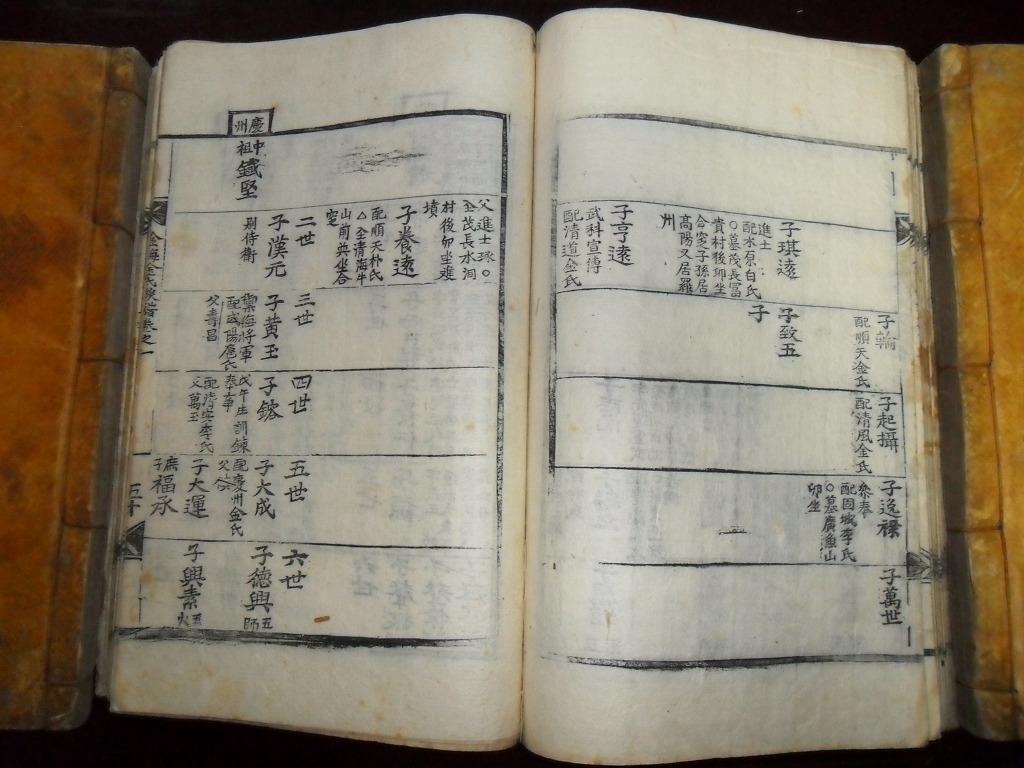 子萬世
子逸祿
參奉
配固城李氏
○墓廣魚山
卯坐
子起攝
配清風金氏
子輪
配順天金氏
子致五
子
子琪遠
進士
配水原白氏
○墓茂長冨
貴村後卯坐
合窆子孫居
高陽又居羅
州
子亨遠
武科宣傳
配清道金氏
父進士琢○
墓茂長水洞
村後卯坐雙
墳
子養遠
配順天朴氏
△全清海牛
山前㐲坐合
窆
慶州
中祖鐵堅
二世
子漢元
別侍衛
三世
子黃玉
配咸陽唐氏
父壽昌
四世
戊午生訓鍊
奉事
配清安李氏
父萬玉
五世
子大成
配慶州金氏
子大運
庶子福承
六世
子德興
五師
子興素
五火
金海金氏族譜卷之一
五十